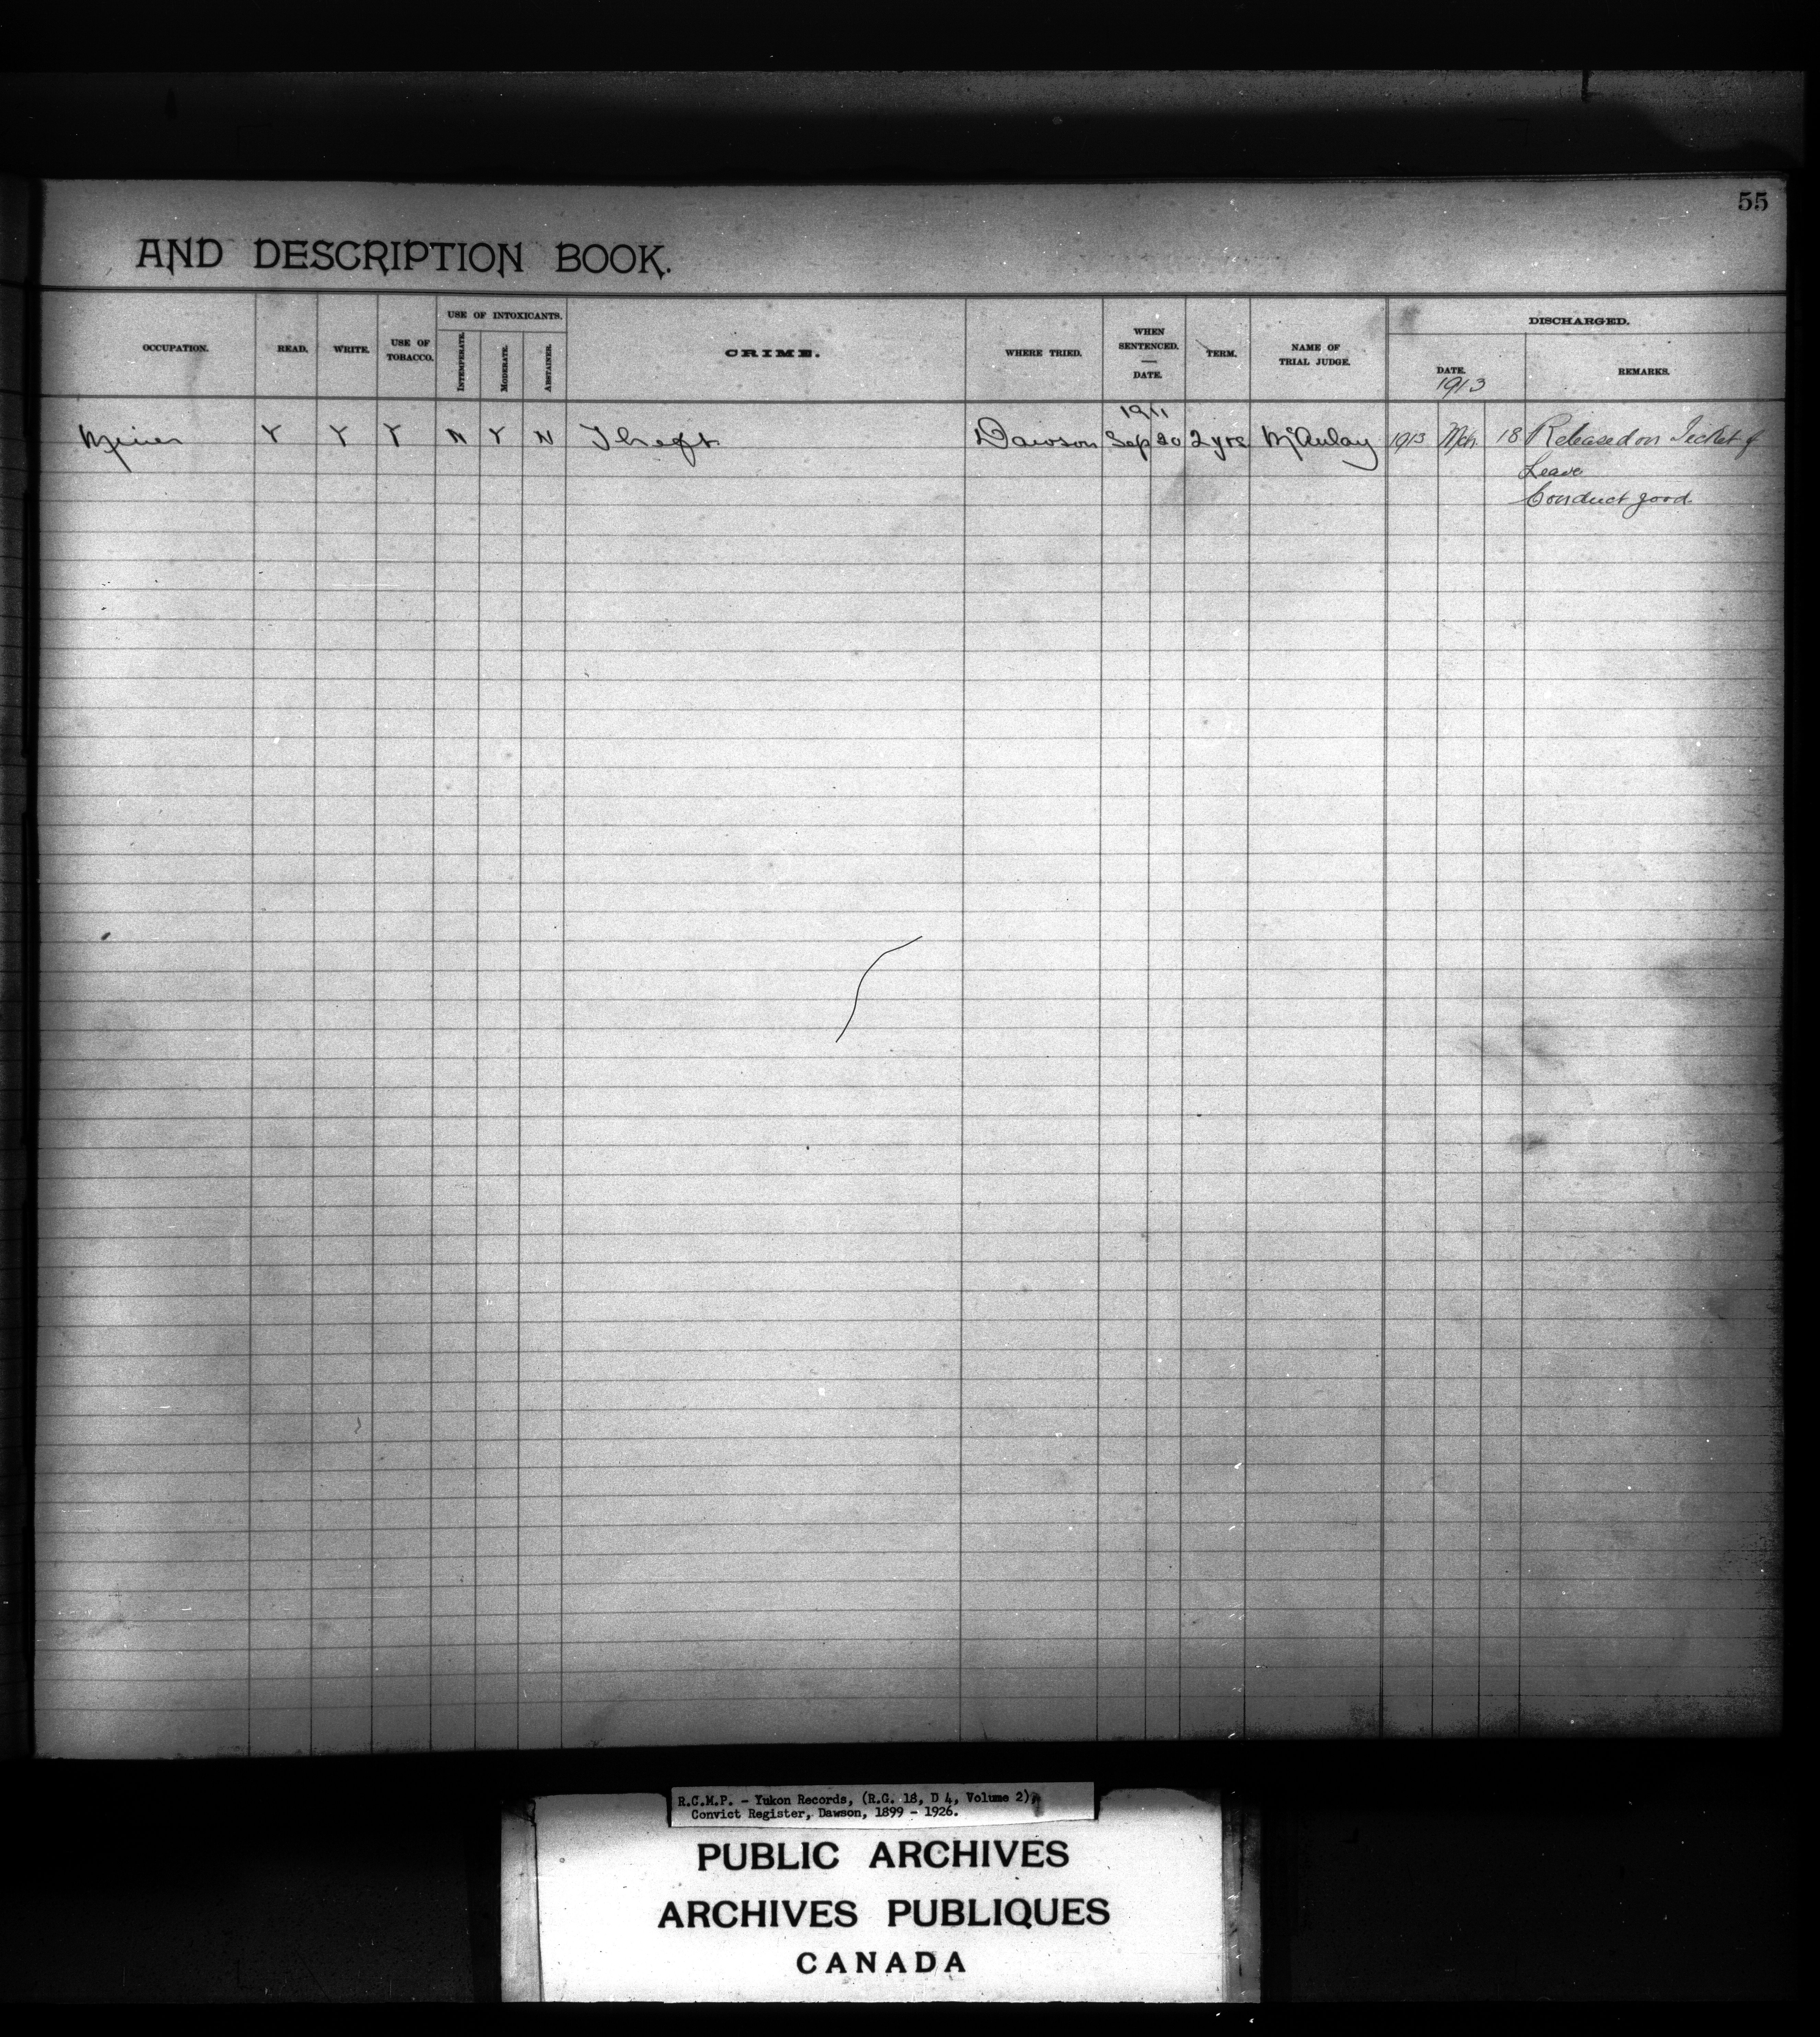 55
AND DESCRIPTION BOOK.
OCCUPATION. READ. WRITE. USE OF TOBACCO. USE OF INTOXICANTS. INTEMPERATE. MODERATE. ABSTAINER. CRIME. WHERE TRIED. WHEN SENTENCED. — DATE. TERM. NAME OF TRIAL JUDGE. DISCHARGED. DATE. 1913 REMARKS.
1911
Miner Y Y Y N Y N Theft Dawson Sep 20 2 yrs McAulay 1913 Mch 18 Released on Ticket of
Leave
Conduct good.
R.C.M.P. - Yukon Records, (R.G. 18, D 4, Volume 2),
Convict Register, Dawson, 1899 - 1926.
PUBLIC ARCHIVES
ARCHIVES PUBLIQUES
CANADA